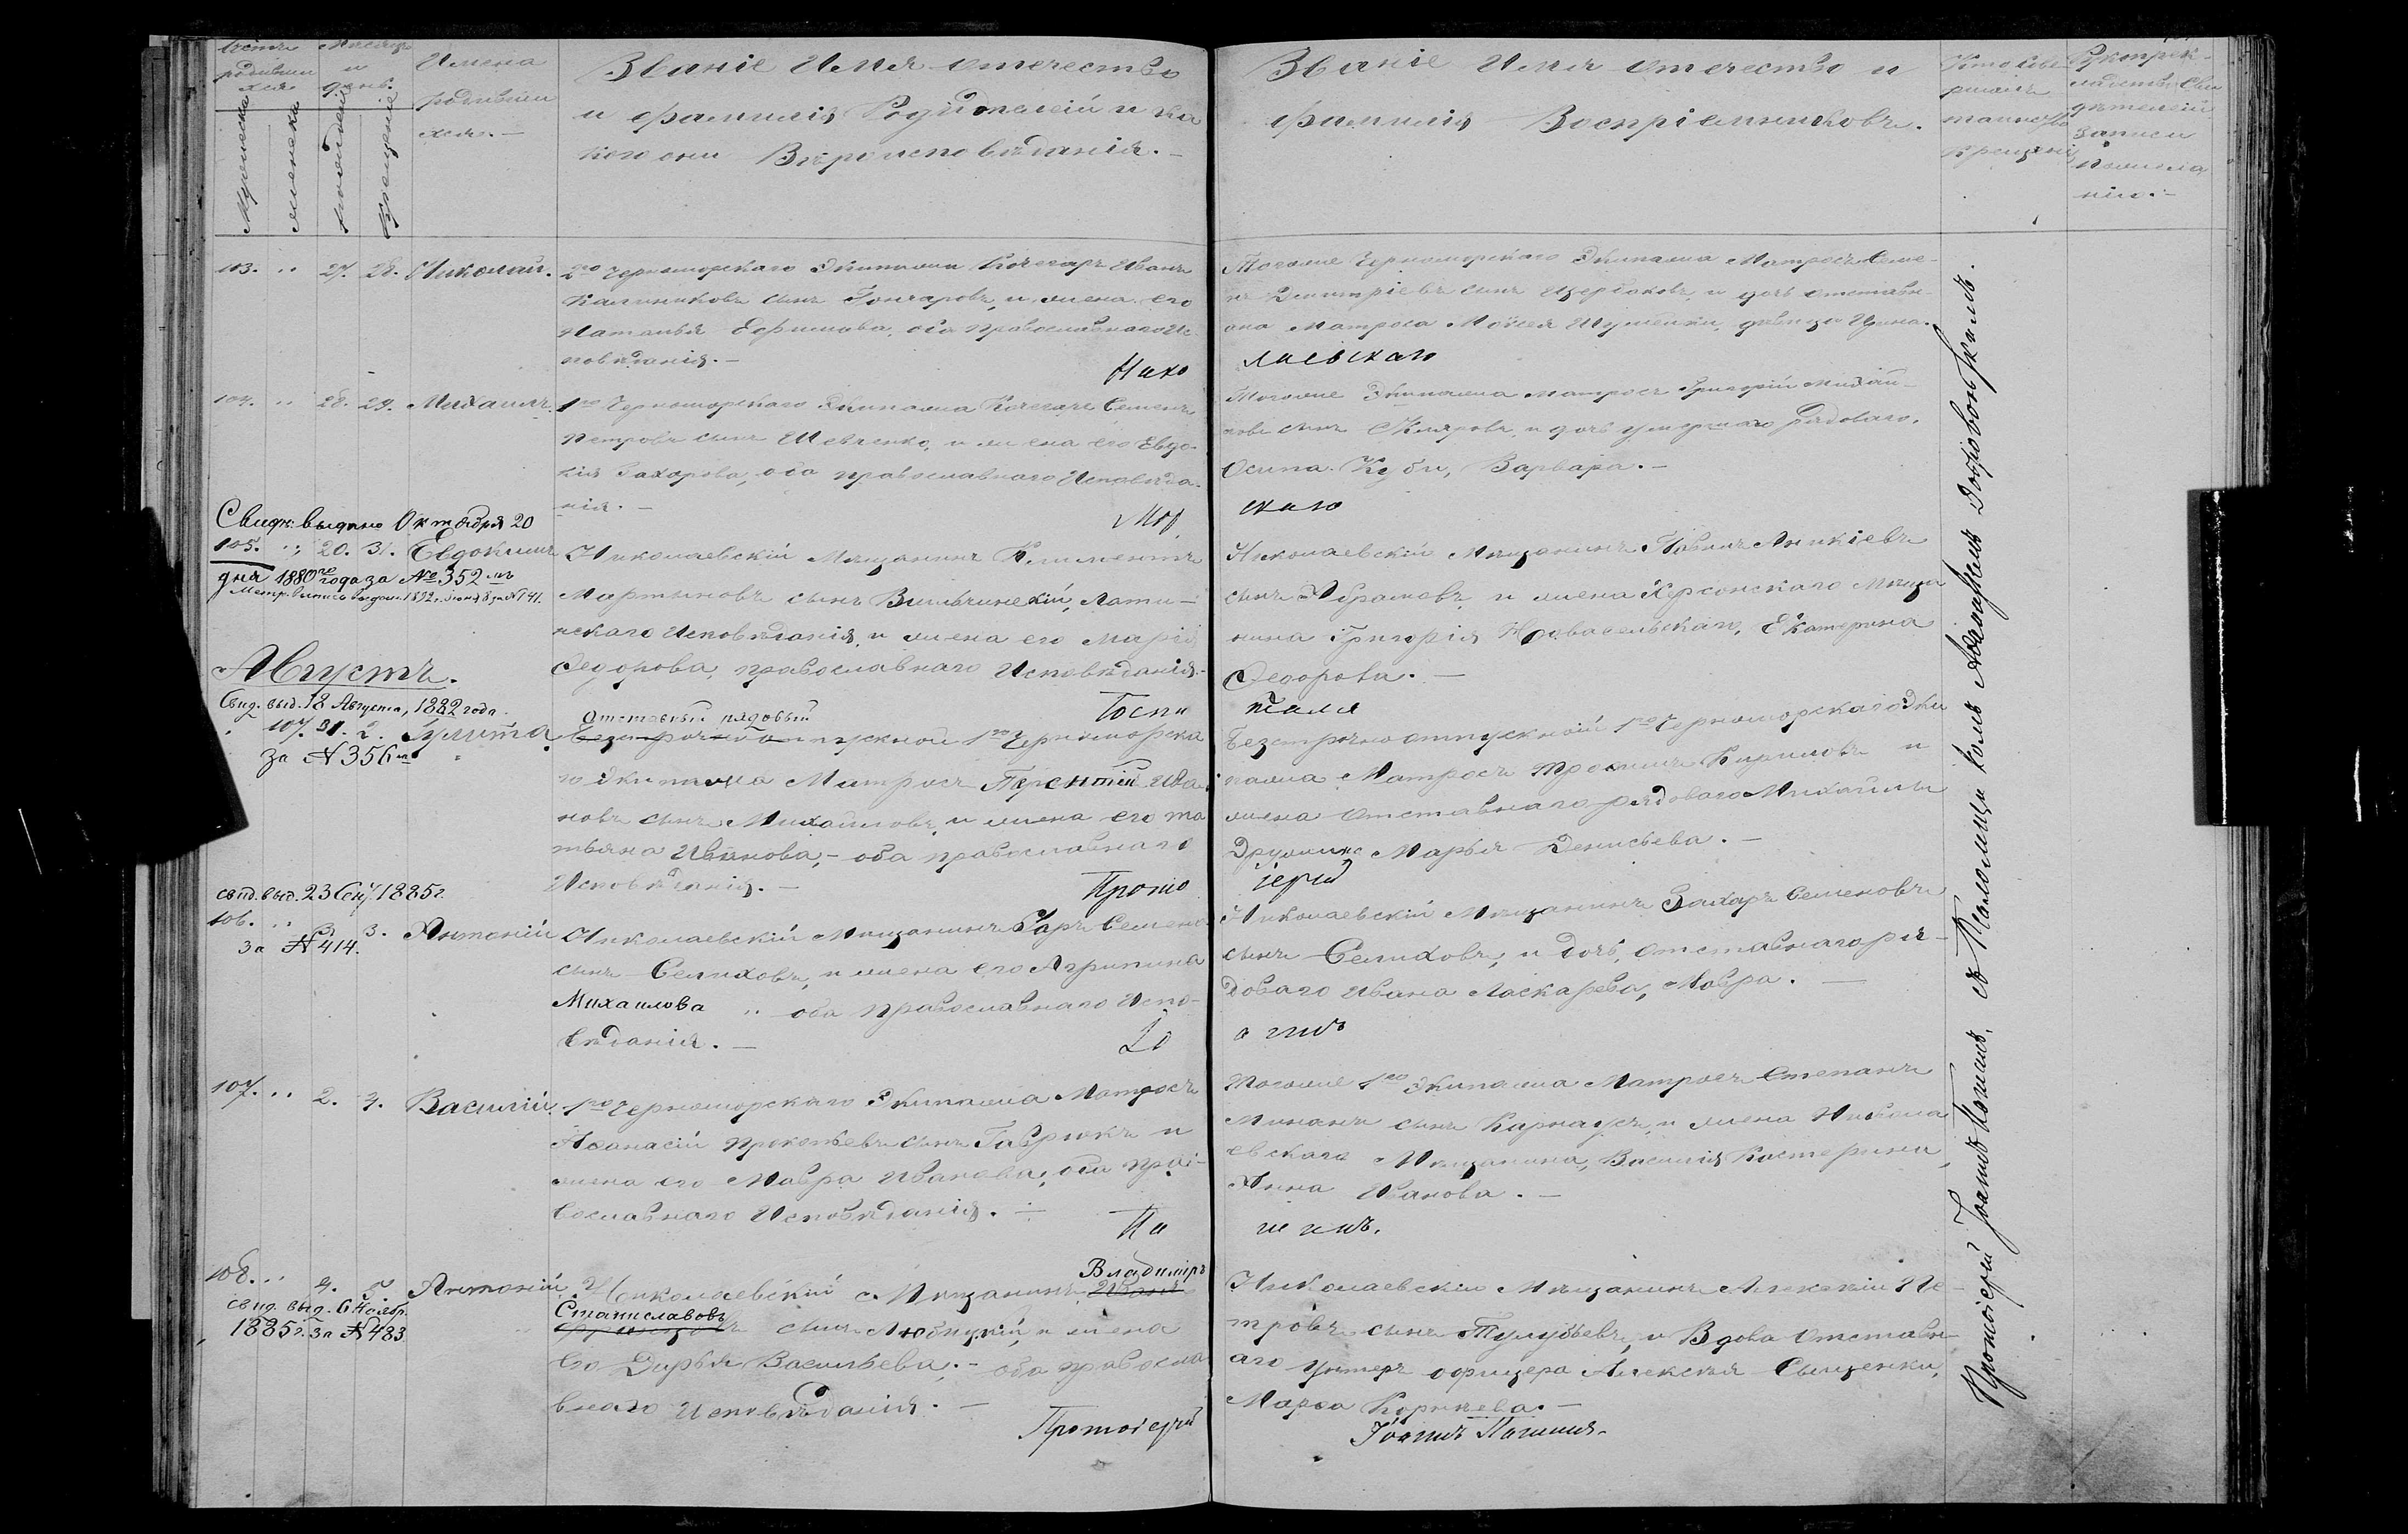 Имена
родивши
хся.—
Званіе Имя отечество
и фамилія Родителей и ка
кого они Вѣроисповѣданія.—
Званіе Имя отечество и
фамилія Воспріемниковъ.
103. " 27. 28. Николай.
2го Черноморскаго Экипажа Кочегаръ Иванъ
Калиниковъ сынъ Гончаровъ, и жена его
Наталья Ефимова, оба православнаго Ис
повѣданія.—
Нико
Тогоже Черноморскаго Экипажа Матросъ Семе-
нъ Дмитріевъ сынъ Щербаковъ, и дочь отставн
аго Матроса Моисея девица Ирина.
лаевскаго
104. " 28. 29. Михаилъ.
1го Черноморскаго Экипажа Кочегаръ Семенъ
Петровъ сынъ Шевченко, и жена его Евдо-
кія Захарова, оба православнаго Исповѣда-
нія.—
Мор
Тогоже Экипажа матросъ Григорій Михай-
ловъ сынъ и дочь умершаго рядоваго,
Осипа Кубы, Варвара.—
скаго
Свидѣ: выдано Октября 20
105. " 20. 31. Евдокимъ
дня 1880го года за № 352мъ
Метр. выпись выдан. 1892 г. Іюня 8 за № 141.
Николаевскій Мѣщанинъ Климентъ
Мартыновъ сынъ Вильчинскій, Лати-
нскаго Исповѣданія, и жена его Марія
Федорова, православнаго Исповѣданія.
Госпи
Николаевскій Мѣщанинъ Павелъ Аникіевъ
сынъ Абрамовъ, и жена Херсонскаго Мѣща
нина Григорія Новосельскаго, Екатерина
Федорова.—
таля
Августъ.
Свид. выд. 18 Августа, 1882 года
107. 31. 2. Іулита
за № 356мъ
отставный рядовый
Безсрочноотпускной 1го Черноморска
го Экипажа Матросъ Терентій Ива
новъ сынъ Михайловъ, и жена его Та
тьяна Иванова,— оба православнаго
Исповѣданія.—
Прото
Безсрочноотпускной 1го Черноморскаго Эки
пажа Матросъ Трофимъ Кириловъ и
жена отставнаго рядоваго Михайлы
Марья Денисьева.—
іерей
свид. выд. 23 Сен. 1885 г.
106. " 3. 3. Антоній
за № 414.
Николаевскій Мѣщанинъ Карпъ Семено
сынъ Селиховъ, и жена его Агрипина
Михаилова " оба православнаго Испо-
вѣданія.—
Іо
Николаевскій Мѣщанинъ Захаръ Семеновъ
сынъ Селиховъ, и дочь, отставнаго ря-
доваго Ивана Ласкарева, Мавра.—
аннъ
107. " 2. 4. Василій.
1го Черноморскаго Экипажа Матросъ
Афанасій Прокопьевъ сынъ Гаврюкъ и
жена его Мавра Иванова, оба пра-
вославнаго Исповѣданія.—
Па
Тогоже 1го Экипажа Матросъ Степанъ
сынъ Карнаухъ, и жена Никола
евскаго Мѣщанина, Василія Костерина,
Анна Иванова.—
шинъ.
108. " 4. 5. Антоній
свид. выд. 6 Ноябр.
1885 г. за № 483
Владиміръ
Николаевскій Мѣщанинъ Иванъ
Станиславовъ
сынъ Любицкій, и жена
Его Дарья Васильева.— оба правосла
внаго Исповѣданія.—
Протоіерей
Николаевскій Мѣщанинъ Алексѣй Пе-
тровъ сынъ Тулубьевъ, и Вдова отставн-
аго унтеръ офицера Алексѣя Сыщенки,
Марфа Корнѣева.—
Іоаннъ Пашинъ.
Протоіерей Іоаннъ Пашинъ, съ Паломщикомъ Добровольскимъ.